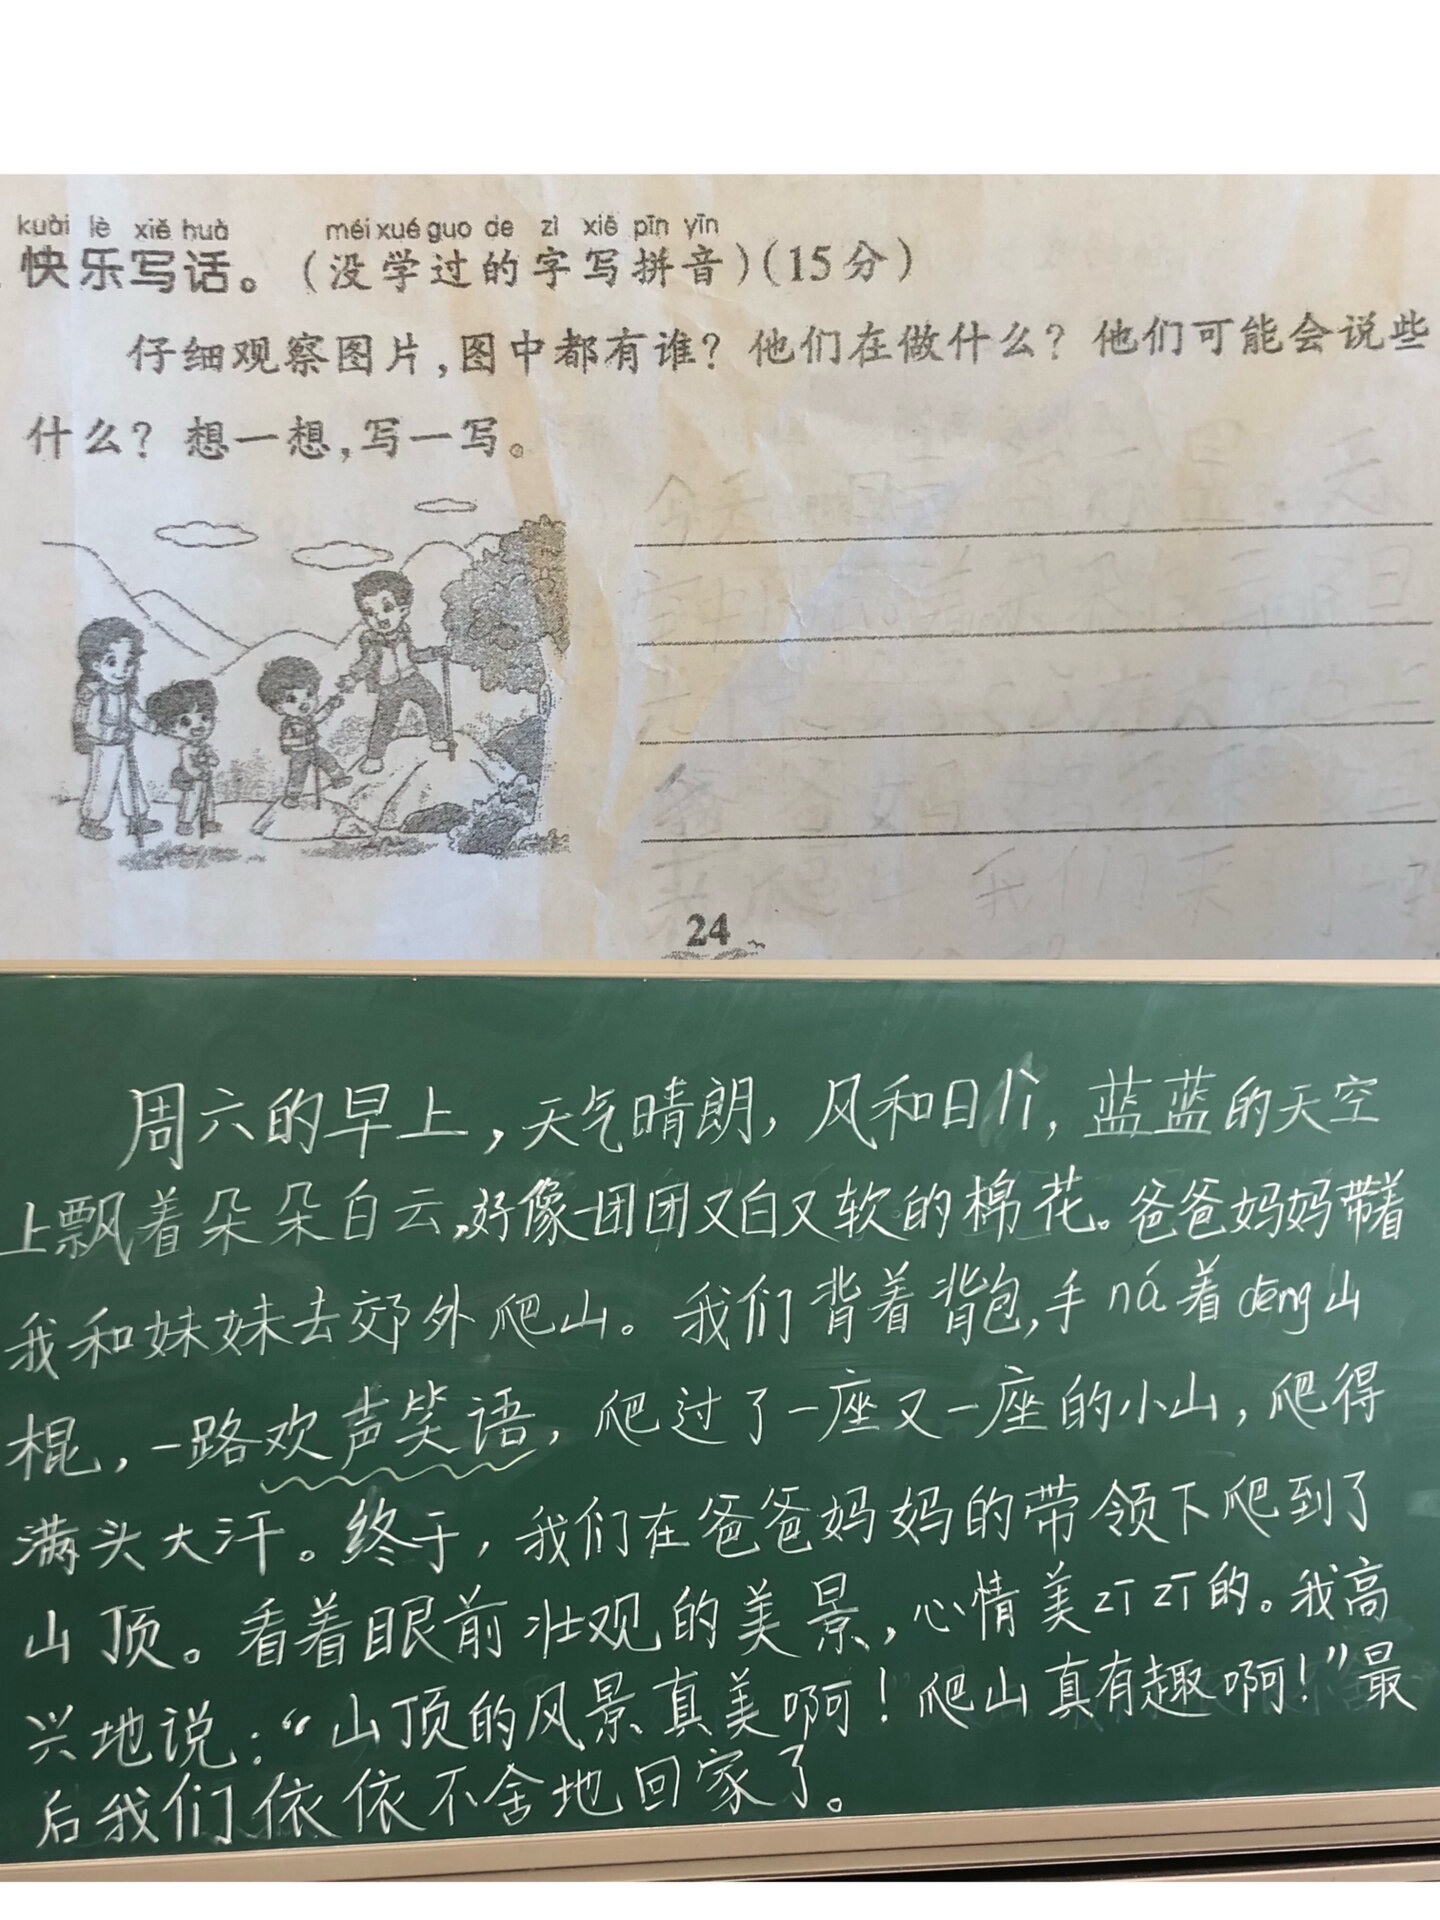 kuài lè xiě huà  méi xué guo de zì xiě pīn yīn
快乐写话。（没学过的字写拼音）（15分）
仔细观察图片，图中都有谁？他们在做什么？他们可能会说些
什么？想一想，写一写。
24
周六的早上，天气晴朗，风和日，蓝蓝的天空
上飘着朵朵白云，好像一团团又白又软的棉花。爸爸妈妈带着
我和妹妹去郊外爬山。我们背着背包，手ná着dēng山
棍，一路欢声笑语，爬过了一座又一座的小山，爬得
满头大汗。终于，我们在爸爸妈妈的带领下爬到了
山顶。看着眼前壮观的美景，心情美zīzī的。我高
兴地说：“山顶的风景真美啊！爬山真有趣啊！”最
后我们依依不舍地回家了。